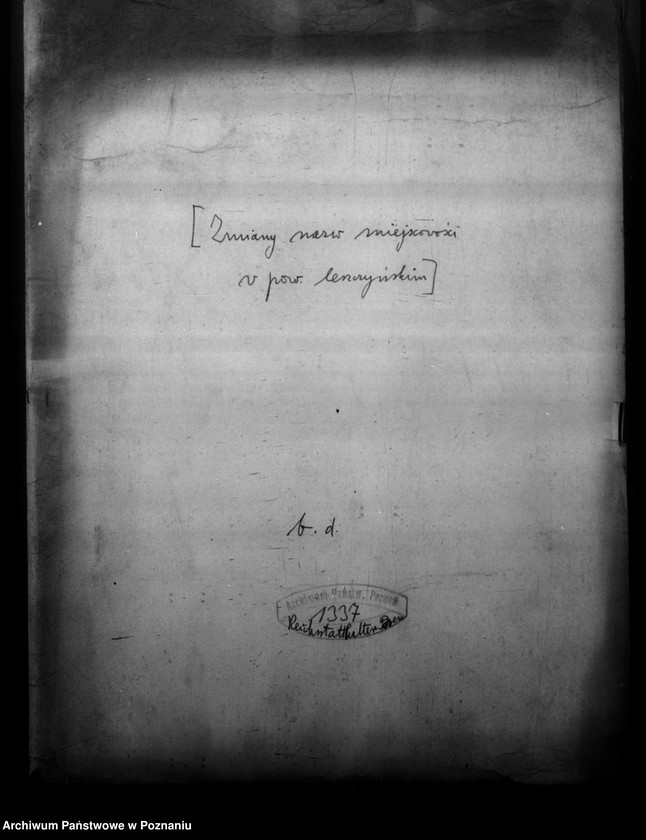 [Zmiany nazw miejscowości
w pow. leszczyńskim]
b. d.
Archiwum Państw. Poznań
1337
Reichsstatthalter Posen
Archiwum Państwowe w Poznaniu